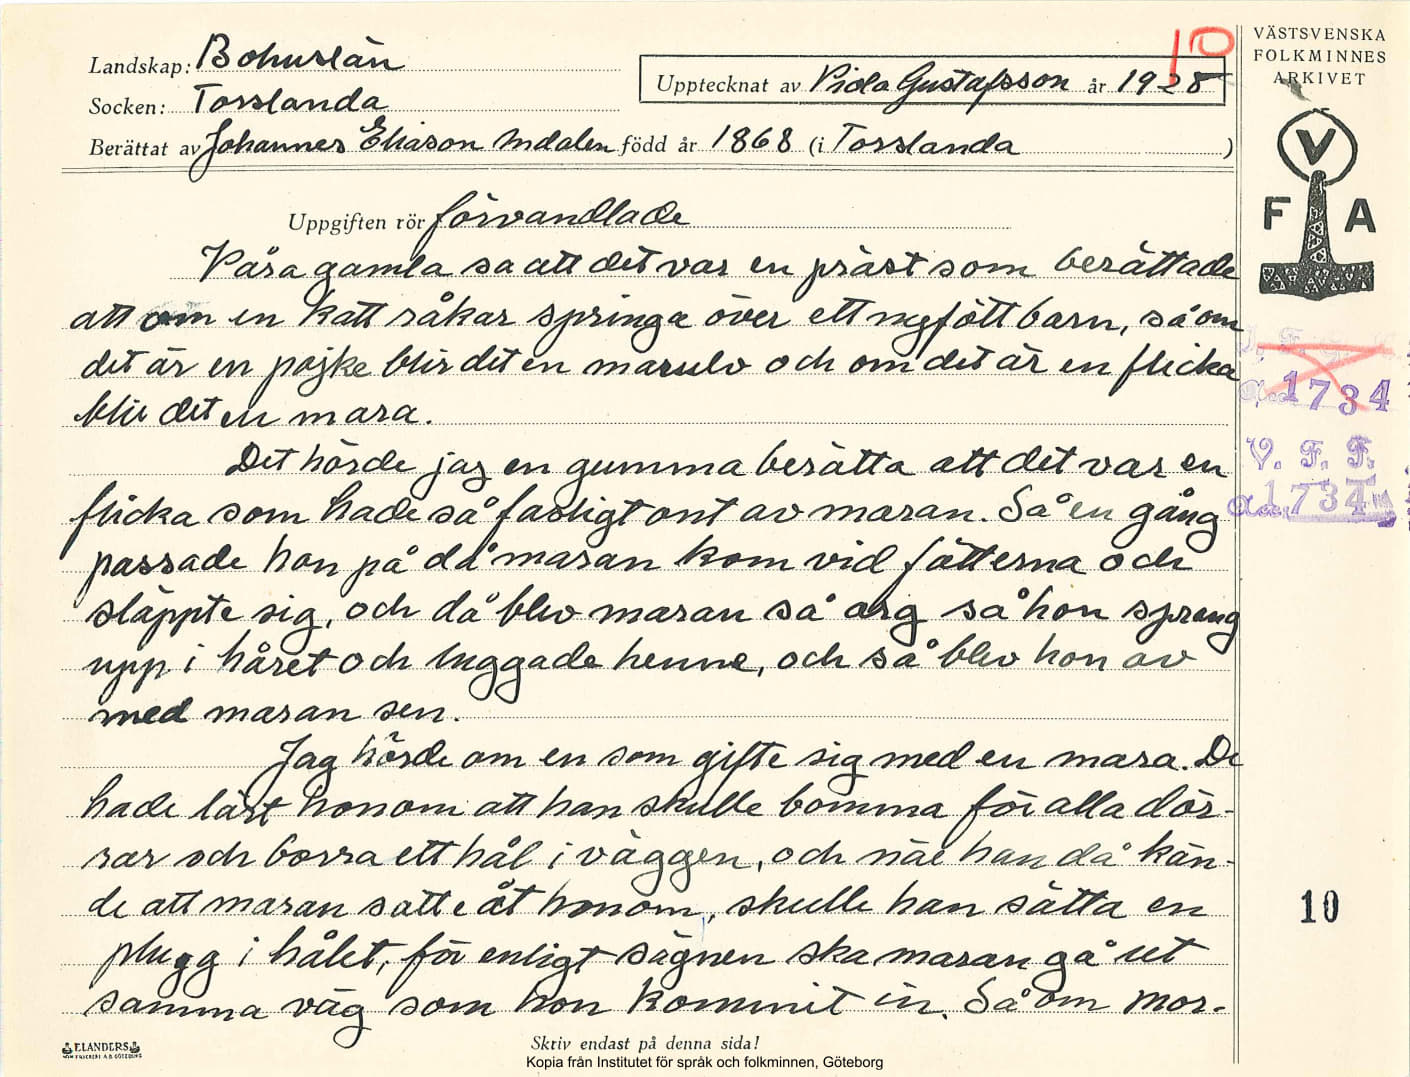 Landskap: Bohuslän
Socken: Torslanda
Upptecknat av Vida Gustafsson år 1928
Berättat av Johannes Eliason Mdalen född år 1868 (i Torslanda )
VÄSTSVENSKA
FOLKMINNES
ARKIVET
V
F A
10
Uppgiften rör förvandlade
Våra gamla sa att det var en präst som berättade
att om en katt råkar springa över ett nyfött barn, så om
det är en pojke blir det en marulv och om det är en flicka
blir det en mara.
Det hörde jag en gumma berätta att det var en
flicka som hade så fasligt ont av maran. Så en gång
passade hon på då maran kom vid fötterna och
släppte sig, och då blev maran så arg så hon sprang
upp i håret och luggade henne, och så blev hon av
med maran sen.
Jag hörde om en som gifte sig med en mara. De
hade lärt honom att han skulle bomma för alla dör-
rar och borra ett hål i väggen, och när han då kän-
de att maran satte åt honom, skulle han sätta en
plugg i hålet, för enligt sägnen ska maran gå ut
samma väg som hon kommit in. Så om mor-
1734
V. F. F.
1734
10
ELANDERS
Skriv endast på denna sida!
Kopia från Institutet för språk och folkminnen, Göteborg